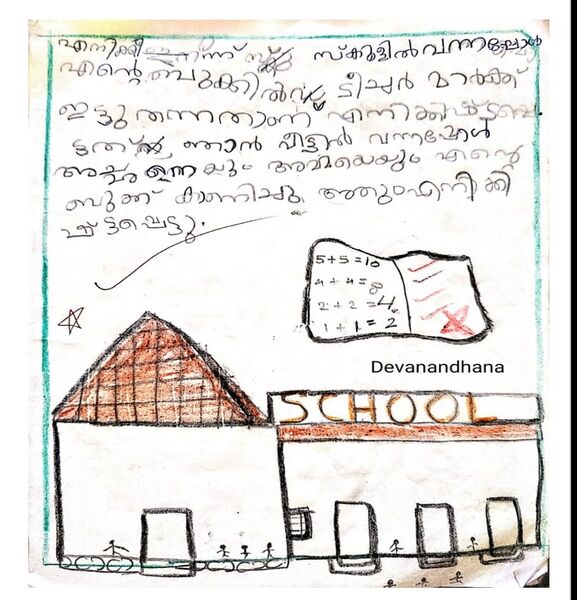 എനിക്ക് ഇന്ന് സ്കൂളിൽ വന്നപ്പോൾ
എന്റെ ബുക്കിൽ ടീച്ചർ മാർക്ക്
ഇട്ടു തന്നതാണ് എനിക്കിഷ്ടപ്പെ
ട്ടത് ഞാൻ വീട്ടിൽ വന്നപ്പോൾ
അച്ഛനെയും അമ്മയെയും എന്റെ
ബുക്ക് കാണിച്ചു അതും എനിക്കി
ഷ്ടപ്പെട്ടു.
5+5=10
4+4=8
2+2=4
1+1=2
Devanandhana
SCHOOL